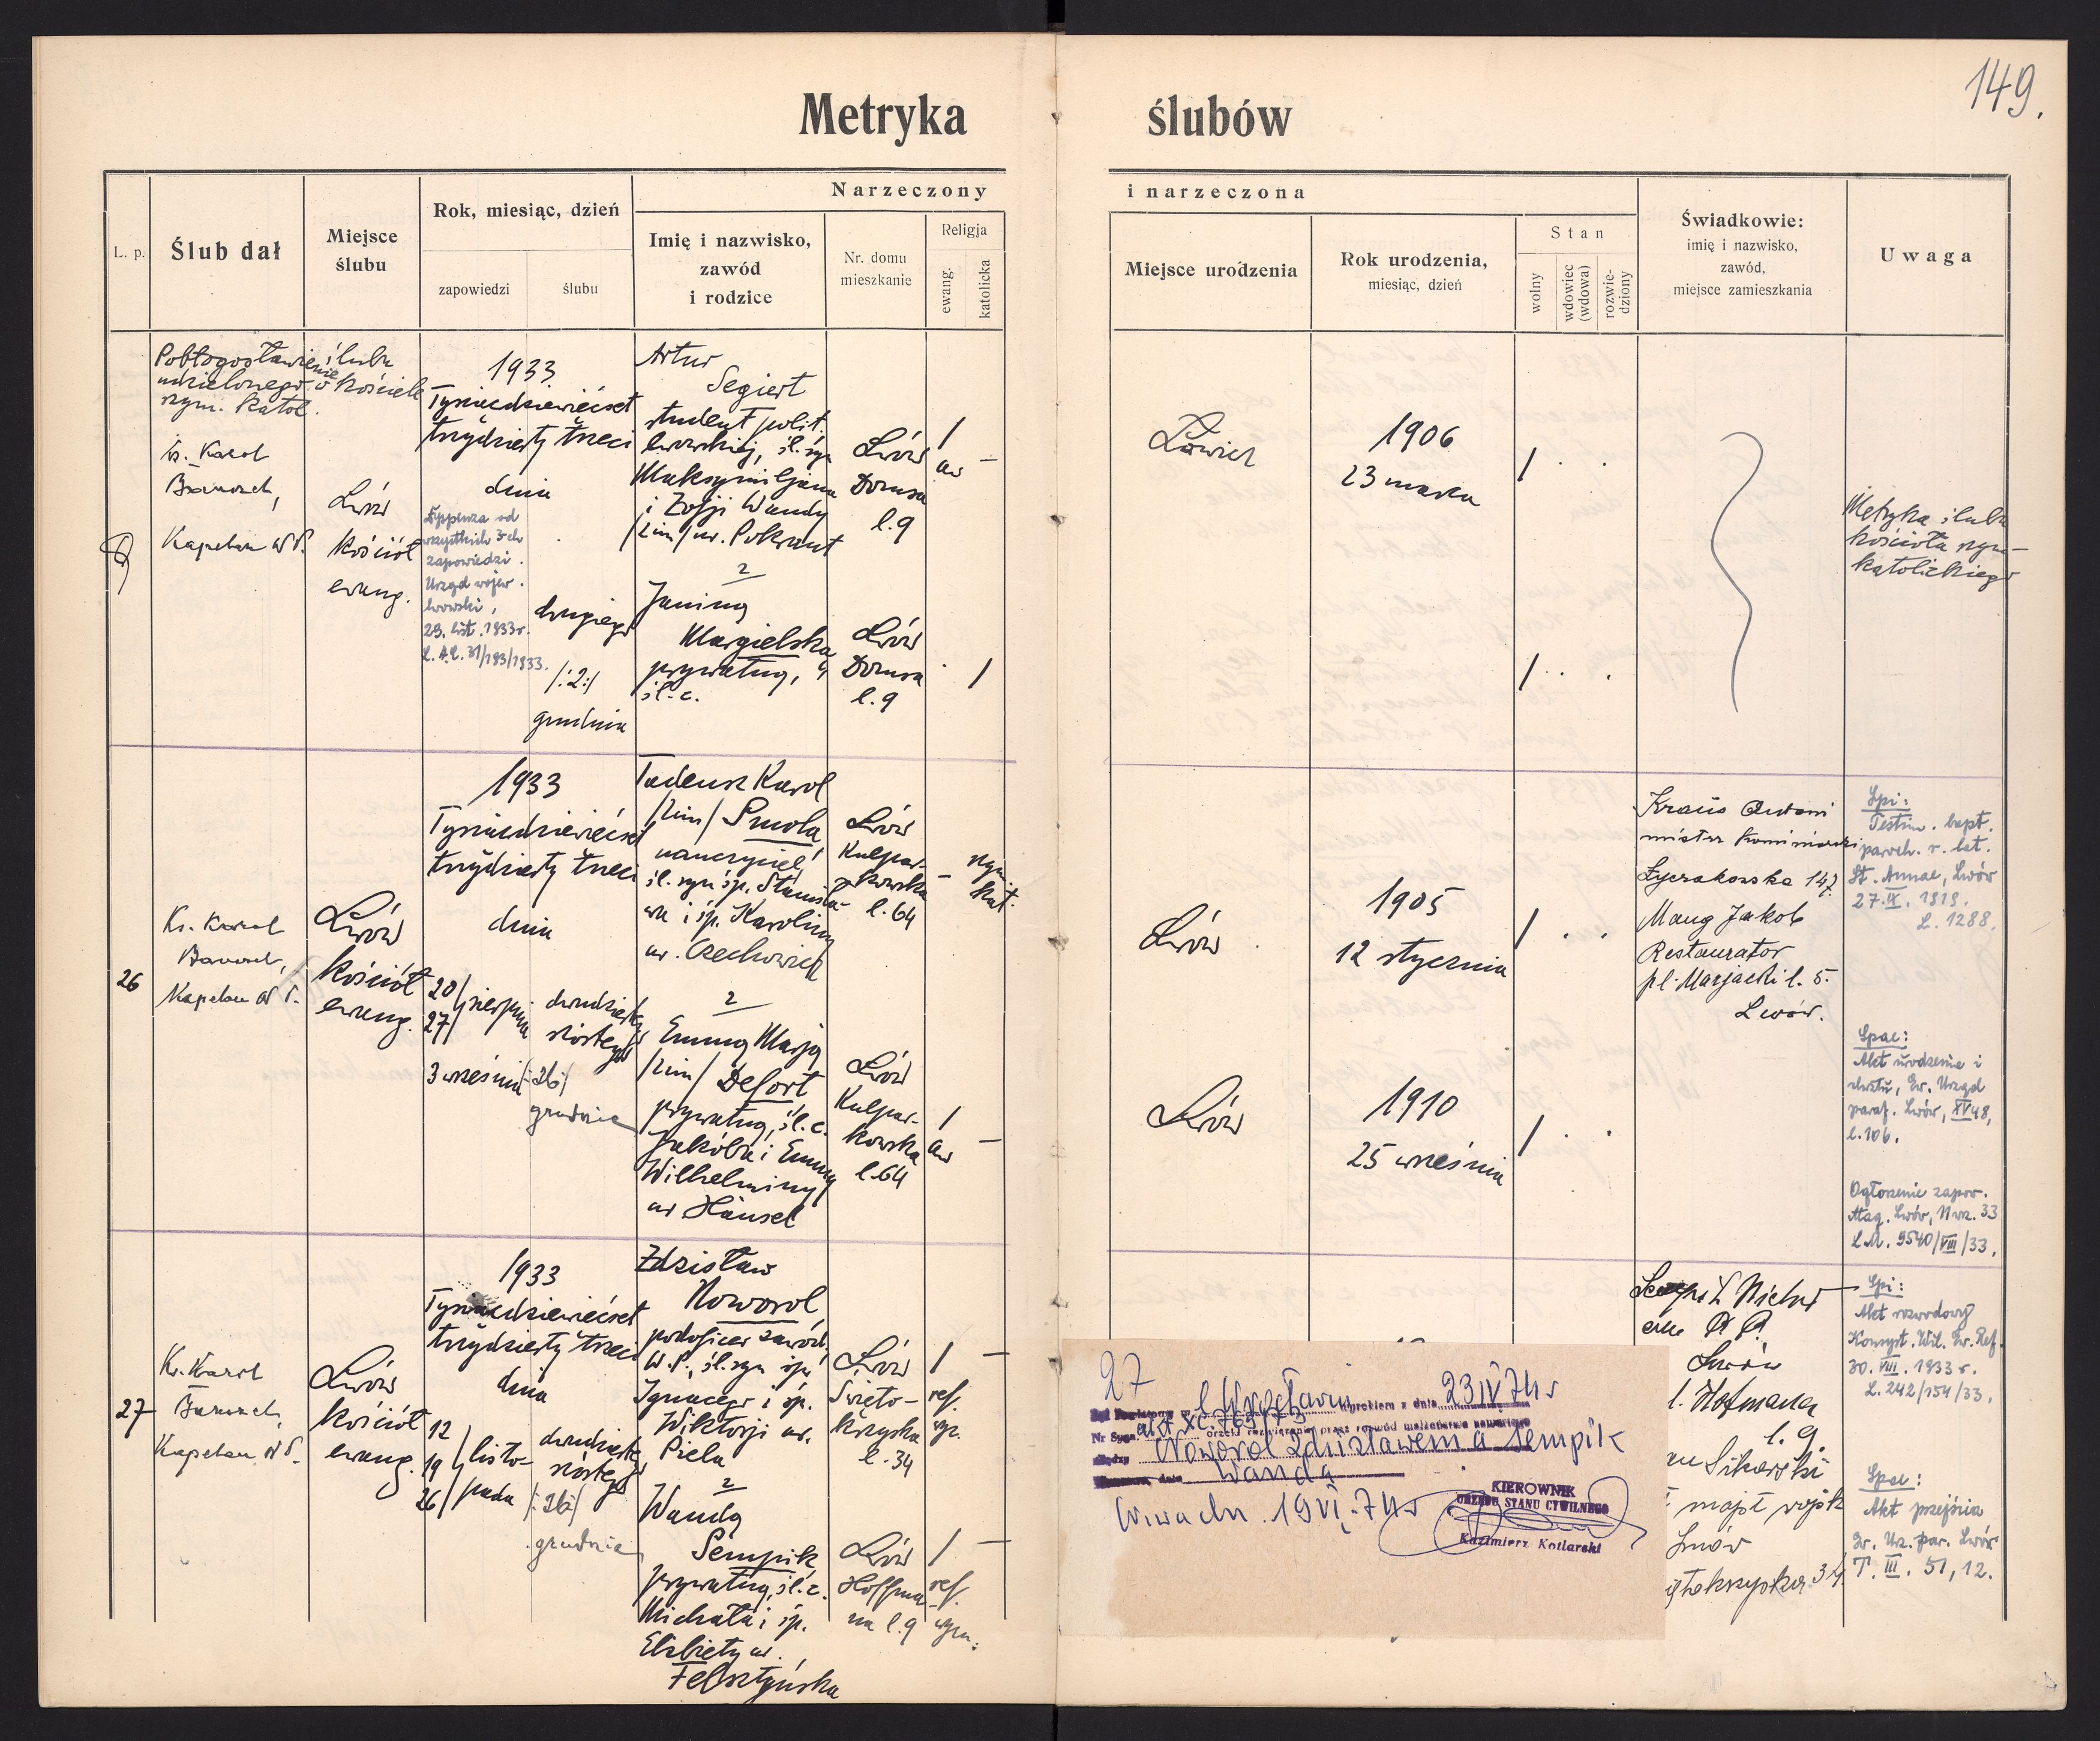 149.
Metryka ślubów
L. p.
Ślub dał
Miejsce
ślubu
Rok, miesiąc, dzień
zapowiedzi
ślubu
Narzeczony
i narzeczona
Imię i nazwisko,
zawód
i rodzice
Nr. domu
mieszkanie
Religja
ewang.
katolicka
Miejsce urodzenia
Rok urodzenia,
miesiąc, dzień
Stan
wolny
wdowiec
(wdowa)
rozwie-
dziony
Świadkowie:
imię i nazwisko,
zawód,
miejsce zamieszkania
Uwaga
Pobłogosławienie ślubu
udzielonego w kościele
rzym. katol.
ks. Karol
Banszel,
Kapelan W.P.
Lwów
kościół
ewang.
1933
Tysiącdziewięćset
trzydziesty trzeci
dnia
Dyspenza od
wszystkich 3-ch
zapowiedzi.
Urząd wojew.
lwowski,
29. list. 1933 r.
L. A.C. 31/193/1933.
drugiego
/:2:/
grudnia
Artur
Segiert
student polit.
lwowskiej, śl. syn
Maksymiljana
i Zofji Wandy
/2im/ ur. Pokrant
z
Janiną
Margielską
prywatną,
śl. c.
Lwów
Dornsa
l. 9
/
aw
—
Lwów
Dornsa
l. 9
/
Łowicz
1906
23 marca
/ . .
/ . .
Metryka ślubu
kościoła rzym-
katolickiego
26
Ks. Karol
Banszel,
Kapelan W.P.
Lwów
kościół
ewang.
1933
Tysiącdziewięćset
trzydziesty trzeci
dnia
20/
27/ sierpnia
3 września
dwudziestego
szóstego
/:26:/
grudnia
Tadeusz Karol
/2im/ Smola
nauczyciel
śl. syn śp. Stanisła-
wa i śp. Karoliny
ur. Czechowicz
z
Emmą Marją
/2im/ Defort
prywatną, śl. c.
Jakóba i Emmy
Wilhelminy
ur Hänsel
Lwów
Kulpar-
kowska
l. 64
—
rzym.
kat.
Lwów
Kulpar-
kowska
l. 64
/
aw
—
Lwów
1905
12 stycznia
/ . .
Lwów
1910
25 września
/ . .
Kraus Antoni
mistrz Kominiarski
Łyczakowska 147.
Maug Jakob
Restaurator
pl. Marjacki l. 5.
Lwów.
Spi:
Testim. bapt.
paroch. r. lat.
St. Annae, Lwów
27. IX. 1919.
L. 1288.
Spae:
Akt urodzenia i
chrztu, Ew. Urząd
paraf. Lwów, XV 48,
l. 106.
Ogłoszenie zapow.
Mag. Lwów, N wz. 33
L.M. 9540/VIII/33.
27
Ks. Karol
Banszel,
Kapelan W.P.
Lwów
kościół
ewang.
1933
Tysiącdziewięćset
trzydziesty trzeci
dnia
12
19
26
listo-
pada
dwudziestego
szóstego
/:26:/
grudnia
Zdzisław
Noworol
podoficer zawod.
W.P., śl. syn śp.
Ignacego i śp.
Wiktorji ur.
Piela
z
Wandą
Sempik,
prywatną, śl. c.
Michała i śp.
Elżbiety ur.
Felsztyńska
Lwów
Święto-
krzyska
l. 34
/
ref.
wyz.
—
Lwów
Hoffma-
na l. 9
/
ref.
wyzn.
—
Sempik Michał
Lwów
l. Hofmana
l. 9
Sikorski
majst wojsk
Lwów
34
Spi:
Akt rozwodowy
Konsyst. Wil. Ew. Ref.
30. VIII. 1933 r.
L. 242/154/33.
Spae:
Akt przejścia
Ew. Urz. par. Lwów
T. III. 51, 12.
27
Wrocławiu wyrokiem z dnia 23 IV 74 r
Nr Sygn. akt XC 765/73 orzekł rozwiązanie przez rozwód małżeństwa zawartego
między Noworol Zdzisławem a Sempik
Wandą
W-wa dn. 19 VI. 74 r
KIEROWNIK
URZĘDU STANU CYWILNEGO
Kazimierz Kotlarski